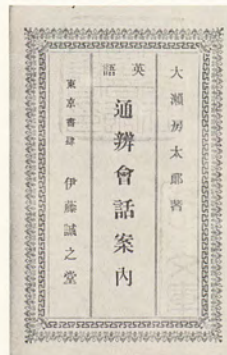 大瀬房太郎著
英語
通辨會話案內
東京書肆 伊藤誠之堂